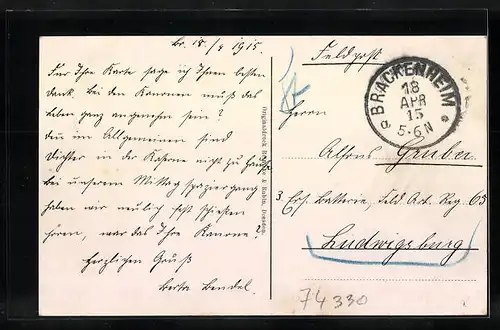 Br. 18./4 1915.
Für Ihre Karte sage ich Ihnen besten
Dank. Bei den Kanonen muß das
Leben ganz angenehm sein?
Denn im Allgemeinen sind
Dichter in der Kaserne nicht zu Hause
Bei unserem Mittagspaziergang
haben wir neulich fest schießen
hören, war das Ihre Kanone?
Herzlichen Gruß
Berta Bendel.
Originaldruck & Kuhn, Dresden
Feldpost
BRACKENHEIM
18
APR
15
5-6N
a *
Herrn
Alfons Gruber
3. Ers. Batterie, Feld. Art. Reg. 65
Ludwigsburg
74330